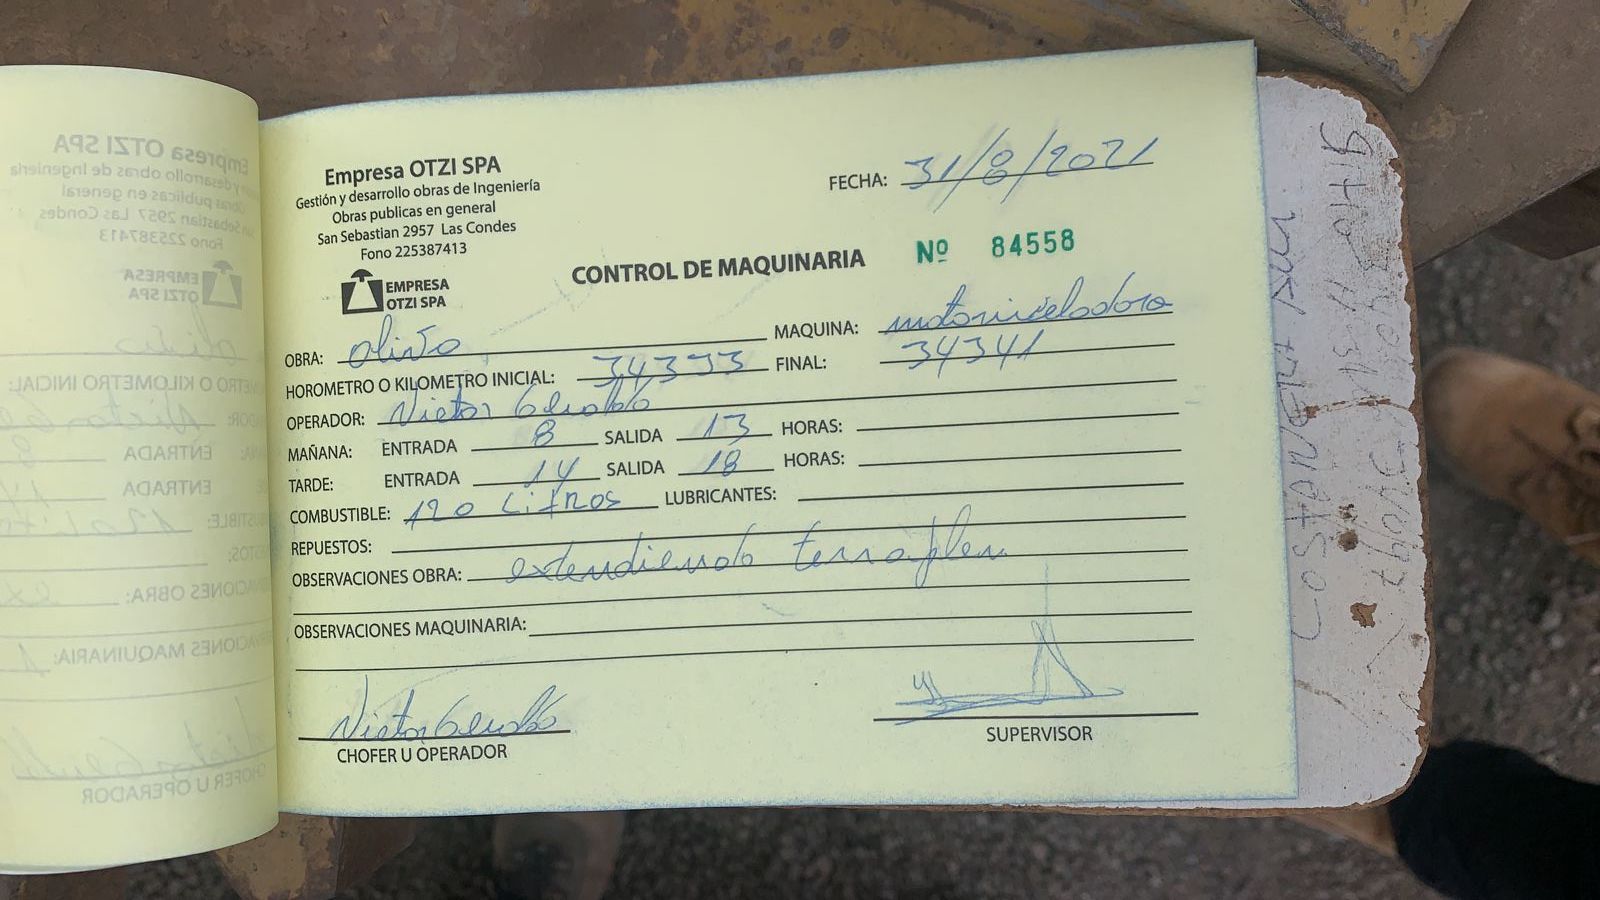 Empresa OTZI SPA
Gestión y desarrollo obras de Ingeniería
Obras publicas en general
San Sebastian 2957 Las Condes
Fono 225387413
EMPRESA
OTZI SPA
FECHA: 31/8/2021
CONTROL DE MAQUINARIA
Nº 84558
OBRA: Olivo MAQUINA: motoniveladora
HOROMETRO O KILOMETRO INICIAL: 34333 FINAL: 34341
OPERADOR: Victor
MAÑANA: ENTRADA 8 SALIDA 13 HORAS:
TARDE: ENTRADA 14 SALIDA 18 HORAS:
COMBUSTIBLE: 120 Litros LUBRICANTES:
REPUESTOS:
OBSERVACIONES OBRA: extendiendo terraplen
OBSERVACIONES MAQUINARIA:
Victor
CHOFER U OPERADOR
SUPERVISOR